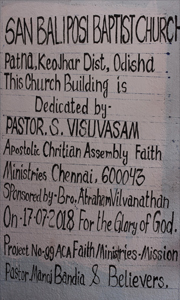 SAN BALIPOSI BAPTIST CHURCH
Patna, Keojhar Dist, Odisha
This Church Building is
Dedicated by-
PASTOR. S. VISUVASAM
Apostolic Chritian Assembly Faith
Ministries Chennai, 600043
Sponsored by-Bro. Abraham Vilvanathan
On-17-07-2018 For the Glory of God.
Project No-99 ACA Faith/Ministries-Mission
Pastor. Mangi Bandia & Believers.